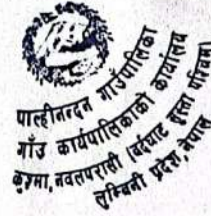 पाल्हीनन्दन गाउँपालिका
गाँउ कार्यपालिकाको कार्यालय
कुश्मा, नवलपरासी (बर्दघाट सुस्ता पश्चिम)
लुम्बिनी प्रदेश, नेपाल